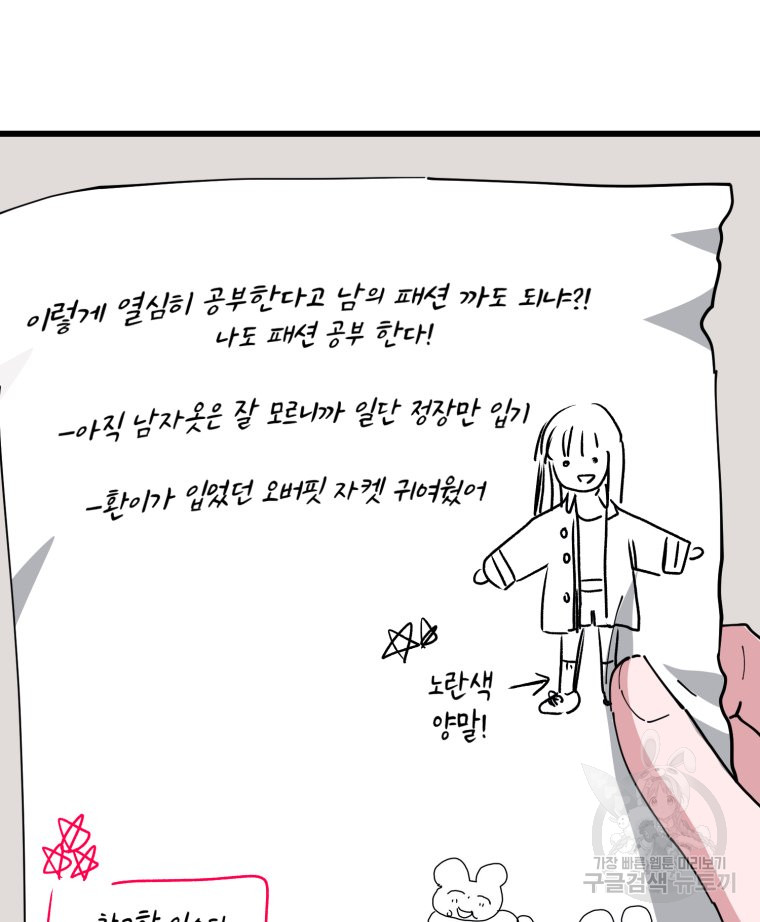 이렇게 열심히 공부한다고 남의 패션 까도 되냐?!
나도 패션 공부 한다!
-아직 남자옷은 잘 모르니까 일단 정장만 입기
-환이가 입었던 오버핏 자켓 귀여웠어
노란색
양말!
가장 빠른 웹툰 미리보기
구글검색 뉴토끼